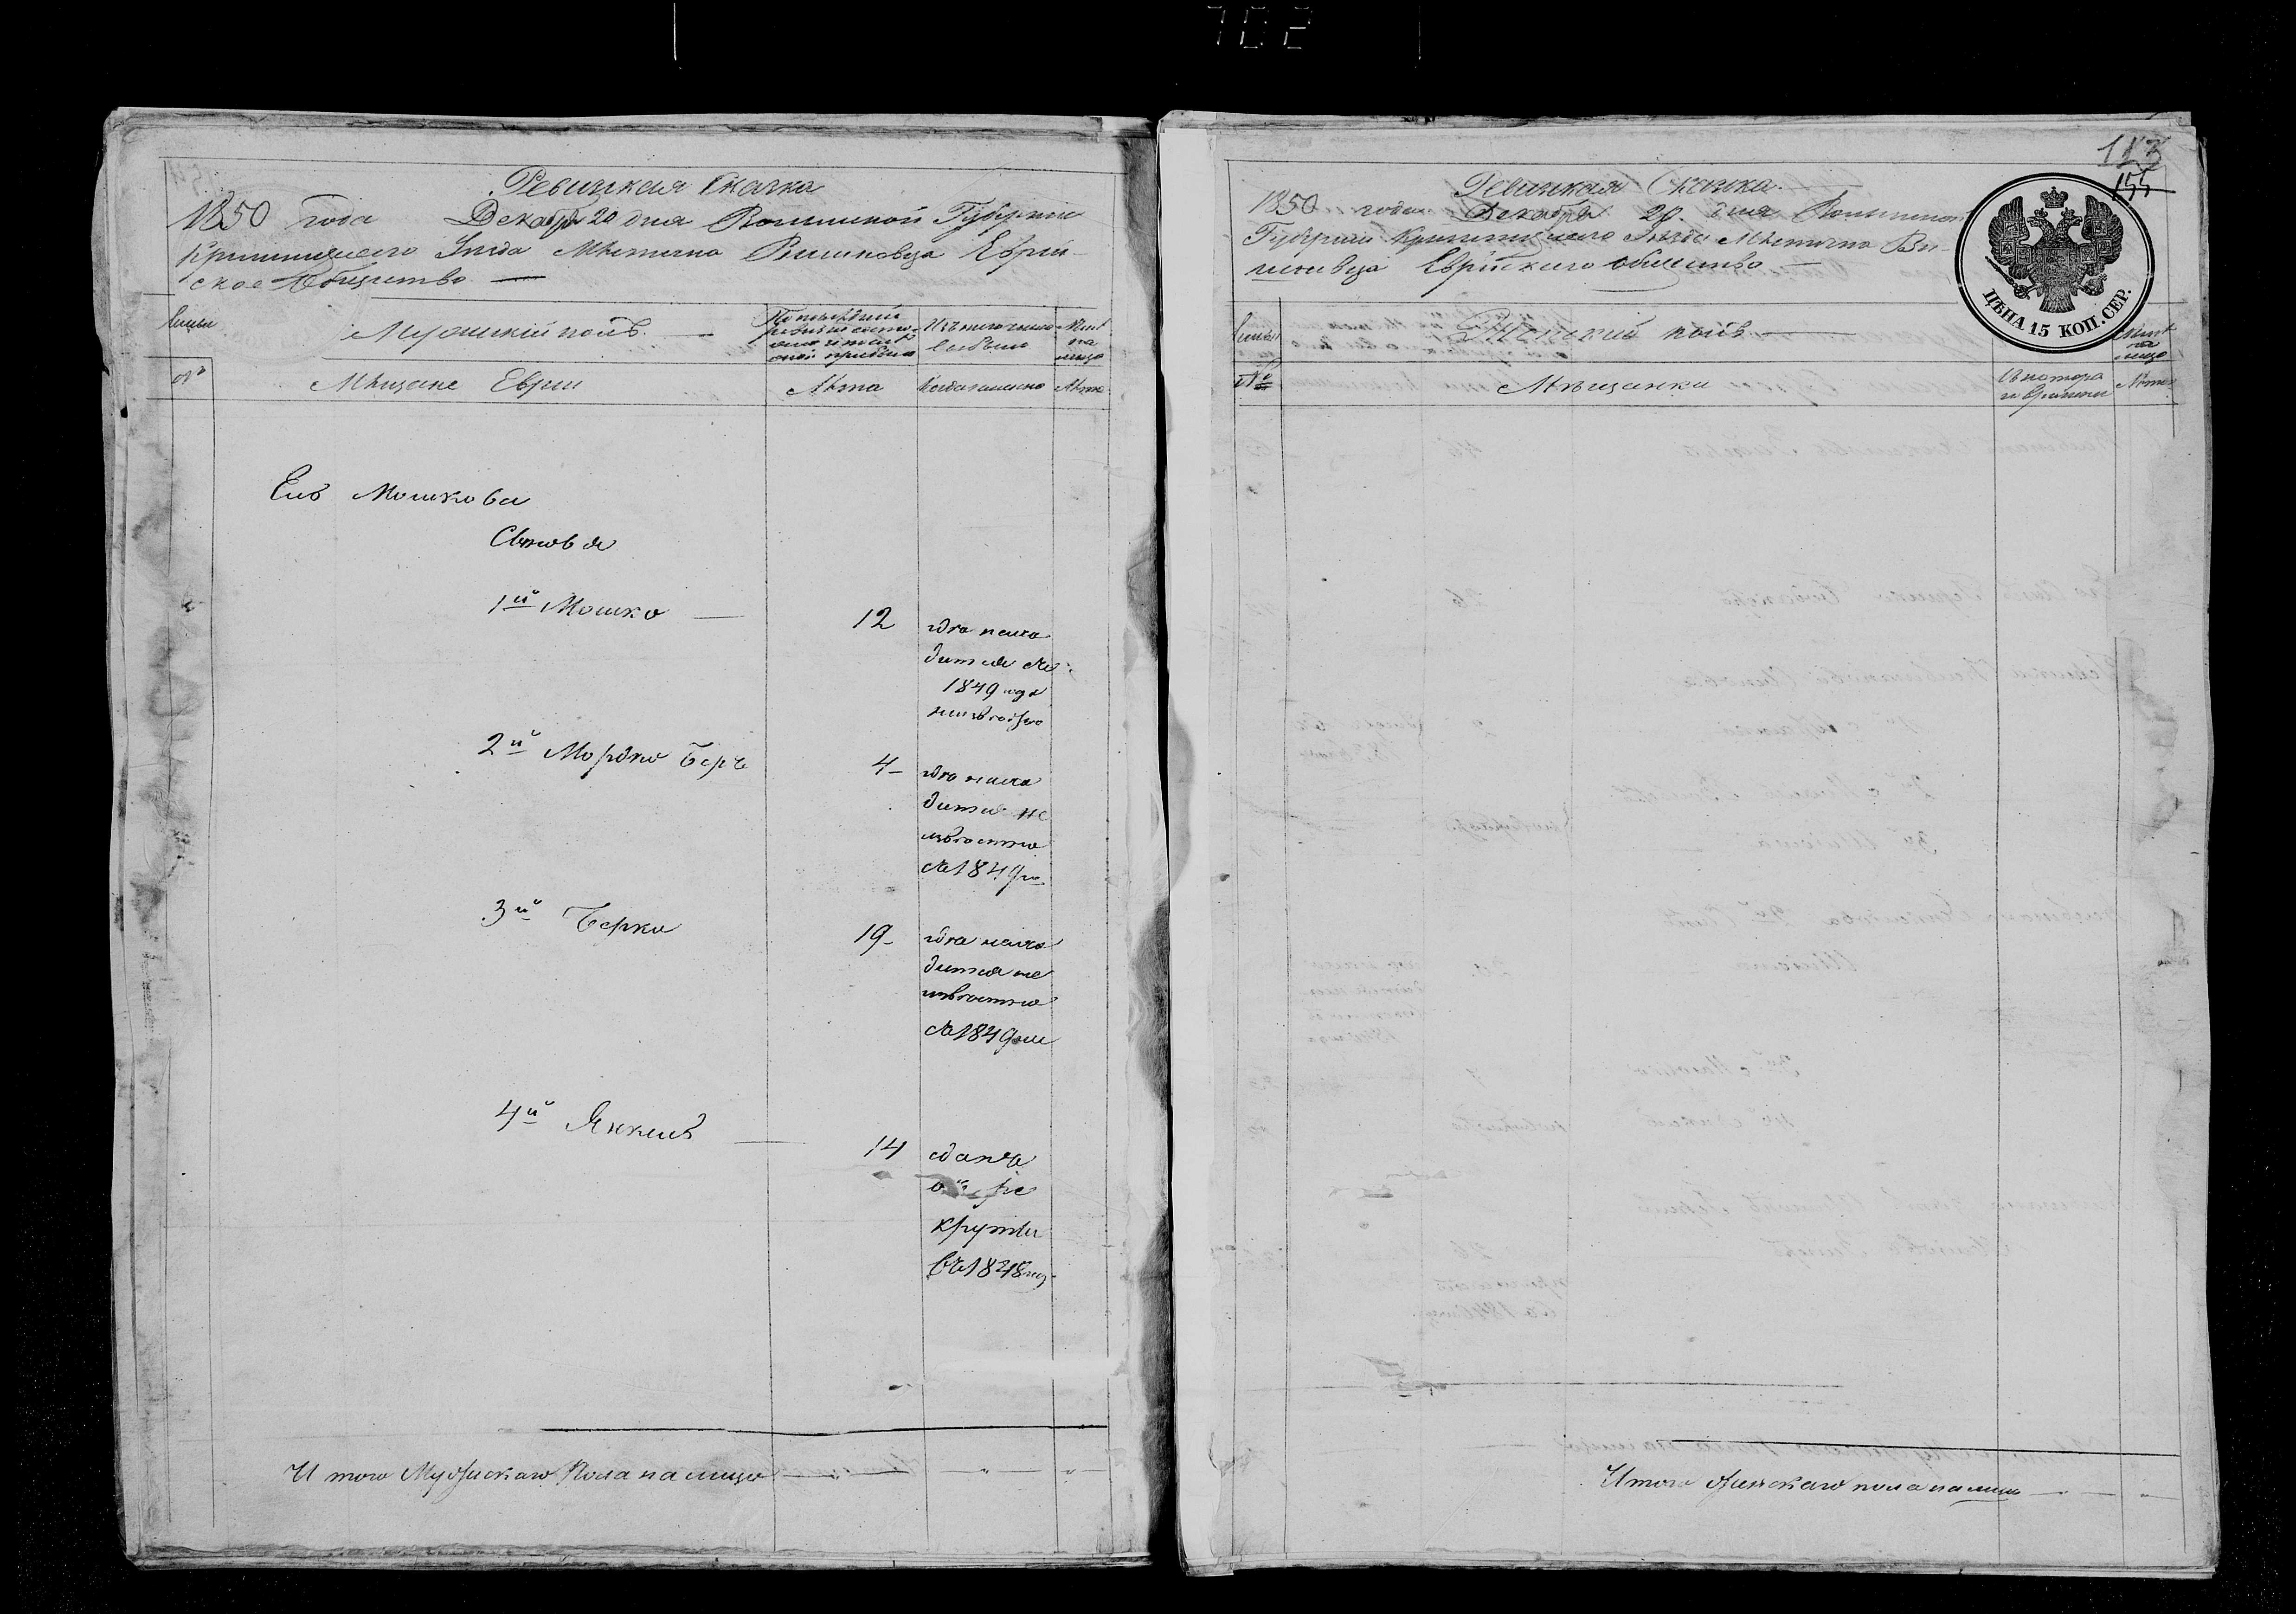 702
Ревизская Сказка
1850 года Декабря 20 дня Волынской Губернии
Кременецкого Уезда Местечка Вишневца Еврей-
ское Общество
Семьи
Мужский полъ
По последней ревизии состо-
Изъ того числа
выбыло
Ныне
на
лицо
№
Мещане Евреи
Лета
Когда именно
Лета
Мошкова
Сыновья
1й Мошко
12
находится съ
1849 года
неизвестно
2й Мордко Беръ
4
находится не
известно
съ 1849 го
3й Берко
19
находится не
известно
съ 1849
4й Янкель
14
сданъ
въ ре
круты
въ 1848
Итого Мужескаго Пола на лицо
113
155
Ревизская Сказка
1850 года Декабря 20 дня Волынской
Губернии Кременецкого Уезда Местечка Ви-
шневца Еврейскаго общества
ЦѢНА 15 КОП. СЕР.
Семьи
Женский полъ
Ныне
на
лицо
№
Мещанки
Съ котора
го времени
Лета
Итого Женскаго пола на лицо